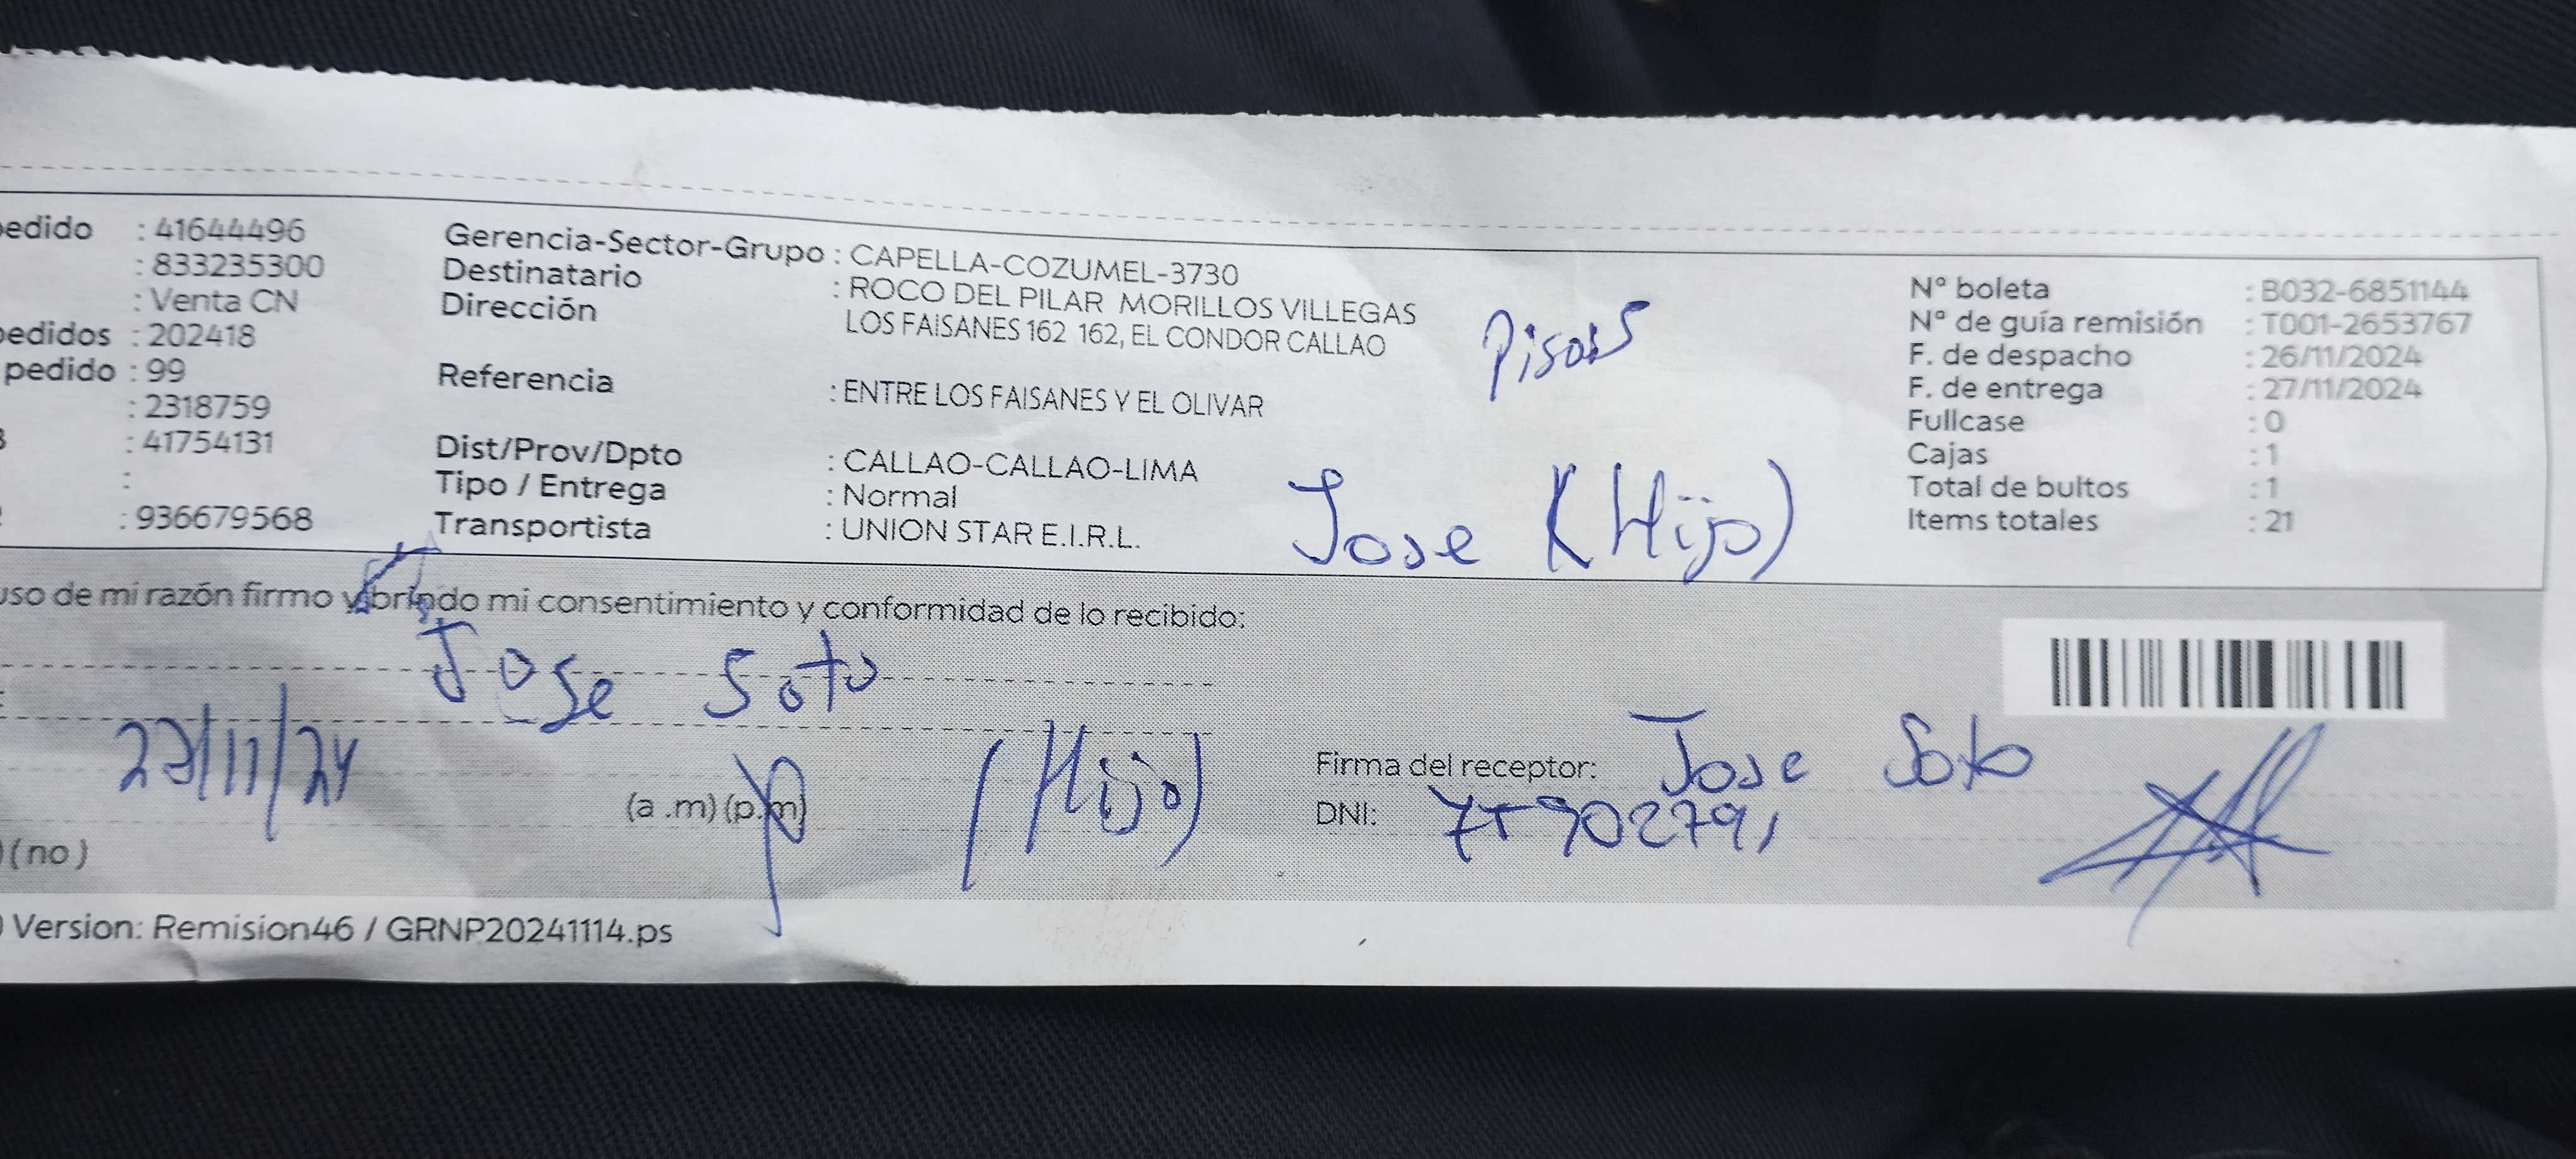 pedido : 41644496
: 833235300
: Venta CN
pedidos : 202418
pedido : 99
: 2318759
: 41754131
:
: 936679568
Gerencia-Sector-Grupo : CAPELLA-COZUMEL-3730
Destinatario : ROCO DEL PILAR MORILLOS VILLEGAS
Dirección LOS FAISANES 162 162, EL CONDOR CALLAO
Referencia : ENTRE LOS FAISANES Y EL OLIVAR
Dist/Prov/Dpto : CALLAO-CALLAO-LIMA
Tipo / Entrega : Normal
Transportista : UNION STAR E.I.R.L.
Jose (Hijo)
Nº boleta : B032-6851144
Nº de guía remisión : T001-2653767
F. de despacho : 26/11/2024
F. de entrega : 27/11/2024
Fullcase : 0
Cajas : 1
Total de bultos : 1
Items totales : 21
uso de mi razón firmo y brindo mi consentimiento y conformidad de lo recibido:
Jose Soto
(a .m) (p.m) (Hijo)
Firma del receptor: Jose Soto
DNI:
(no)
Version: Remision46 / GRNP20241114.ps